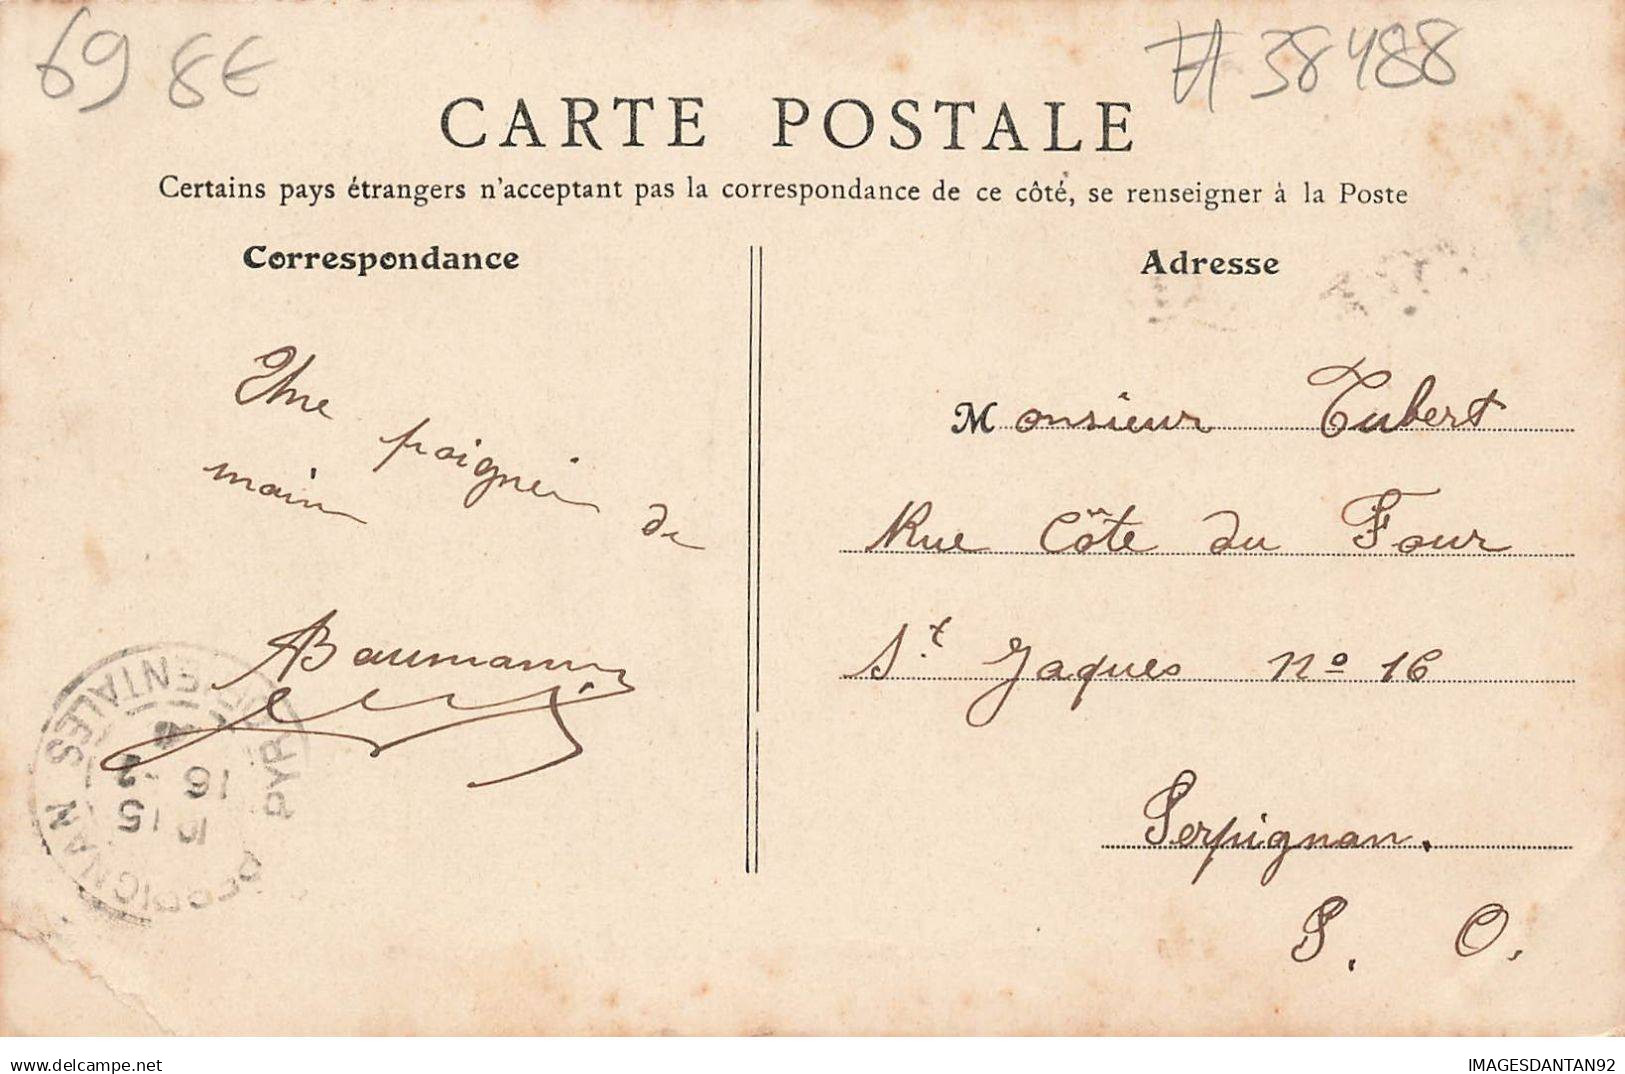 69 8€
# 38488
CARTE POSTALE
Certains pays étrangers n'acceptant pas la correspondance de ce côté, se renseigner à la Poste
Correspondance
Une poignée de
main
ABaumann
Adresse
Monsieur Tubert
Rue Côte du Four
St. Jaques No 16
Perpignan.
P. O.
PERPIGNAN
PYR. ORIENTALES
15
16 -2
www.delcampe.net
IMAGESDANTAN92